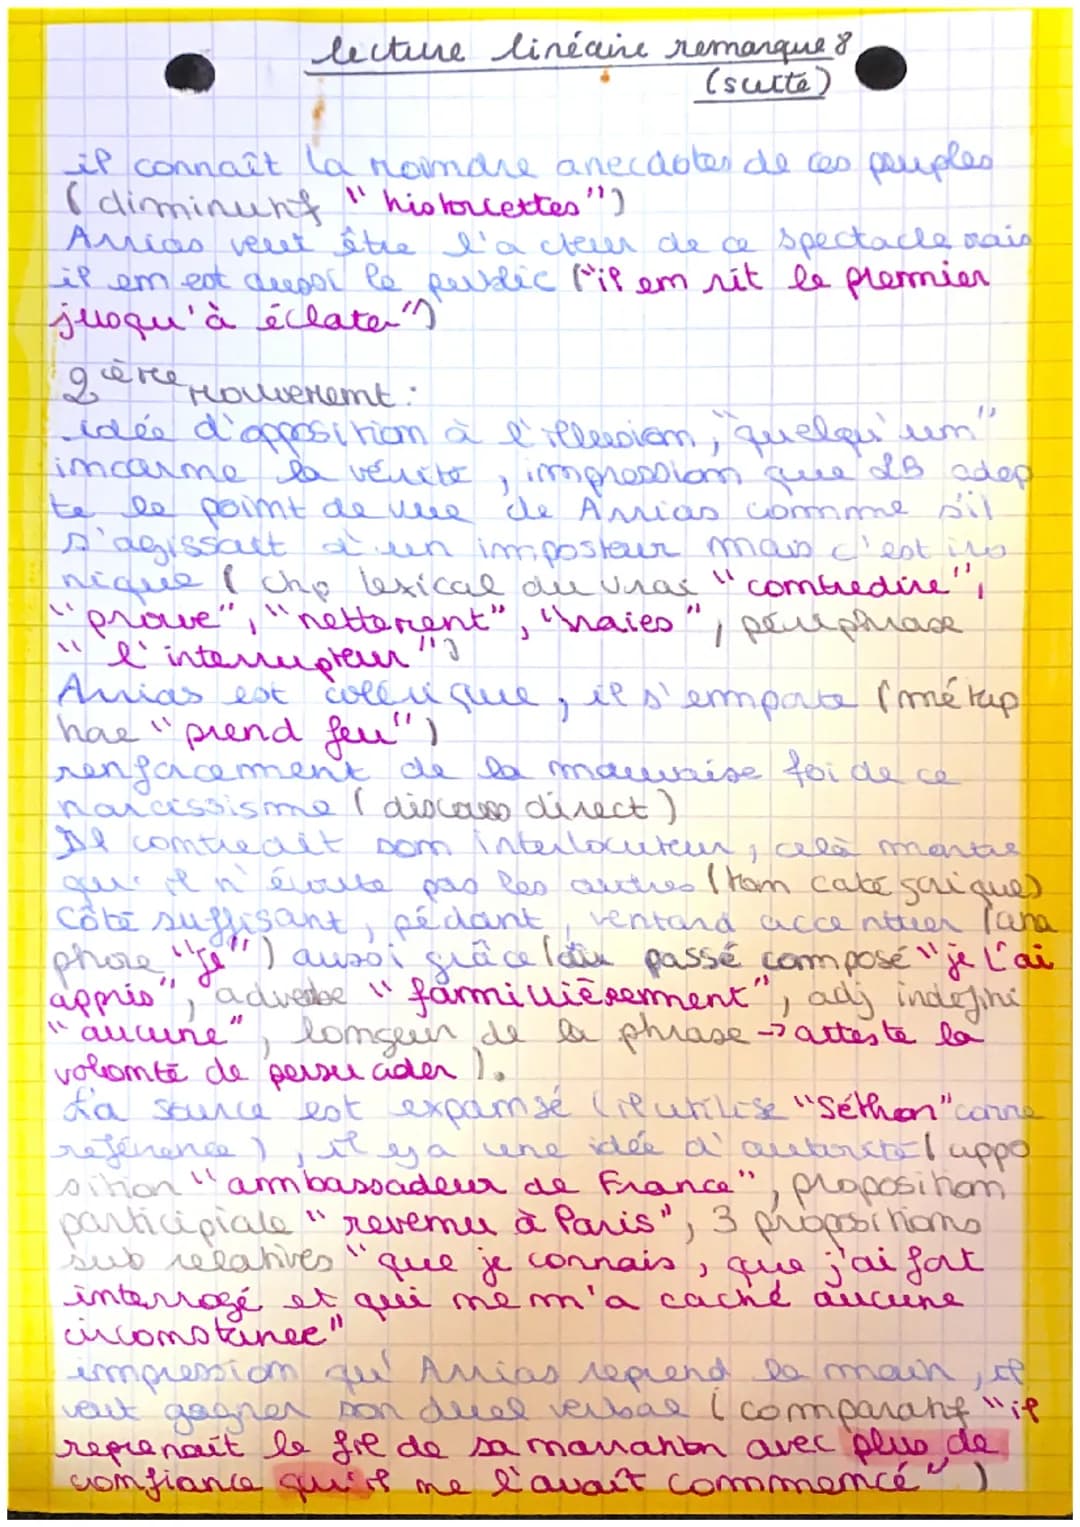 lecture linéaire remarque 8
(suite)
il connaît la moindre anecdotes de ces peuples
(diminutif "historiettes")
Arrias veut être l'acteur de ce spectacle mais
il em est aussi le public ("il em rit le premier
jusqu'à éclater")
2ième mouvement :
idée d'opposition à l'illusion, "quelqu'un"
incarne la vérité, impression que LB adop
te le point de vue de Arrias comme s'il
s'agissait d'un imposteur mais c'est iro
nique (chp lexical du vrai "contredire",
"prouve", "nettement", "vraies", périphrase
"l'interrupteur")
Arrias est colérique, il s'emporte (métap
hore "prend feu")
renforcement de la mauvaise foi de ce
narcissisme (discours direct)
Il contredit son interlocuteur, celà montre
qu'il n'écoute pas les autres (ton catégorique)
Côté suffisant, pédant, ventard accentuer (ana
phore "je") aussi grâce (au passé composé "je l'ai
appris", adverbe "familièrement", adj indéfini
"aucune", longeur de la phrase → atteste la
volonté de persuader).
La source est expansé (il utilise "Séthon" comme
référence), il y a une idée d'autorité (appo
sition "ambassadeur de France", proposition
participiale "revenu à Paris", 3 propositions
sub relatives "que je connais, que j'ai fort
interrogé et qui ne m'a caché aucune
circonstance"
impression qu'Arrias reprend la main, il
veut gagner son duel verbal (comparatif "il
reprenait le fil de sa narration avec plus de
confiance qu'il ne l'avait commencé")